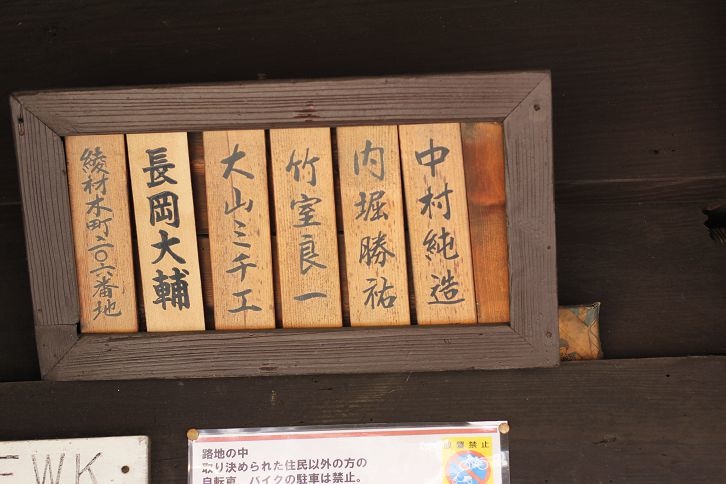 中村純造
内堀勝祐
竹室良一
大山ミチ工
長岡大輔
綾材木町二〇六番地
路地の中
取り決められた住民以外の方の
自転車、バイクの駐車は禁止。
EWK